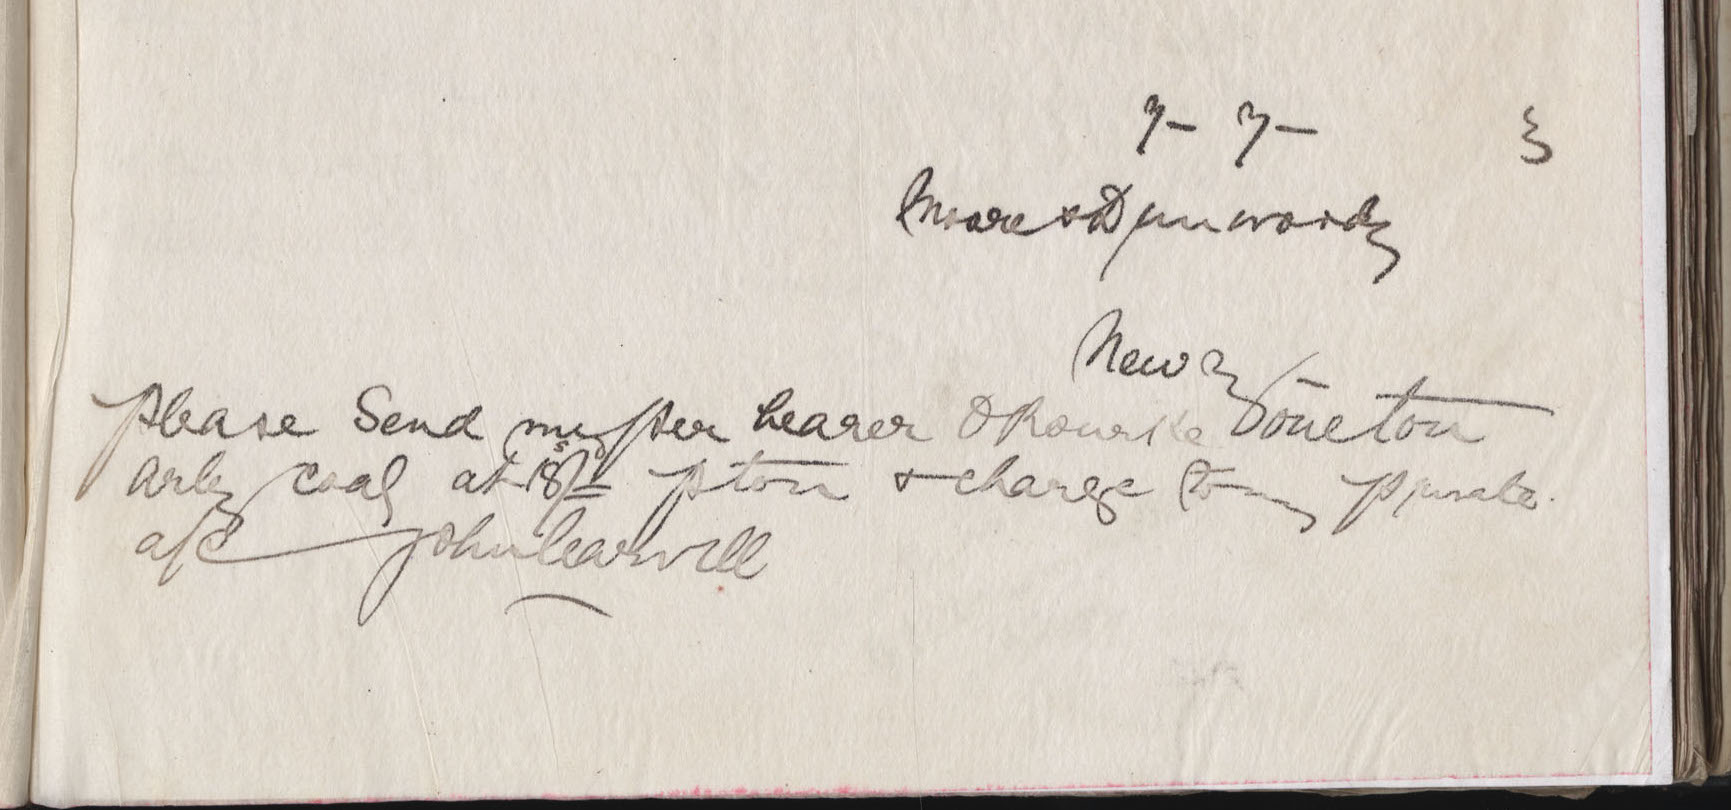 7- 7- 3
Moore & Dunwoody
Newry
Please Send me per bearer O Rourke One ton
Arley coal at 18s/= p ton & charge to my private
a/c John Carvill